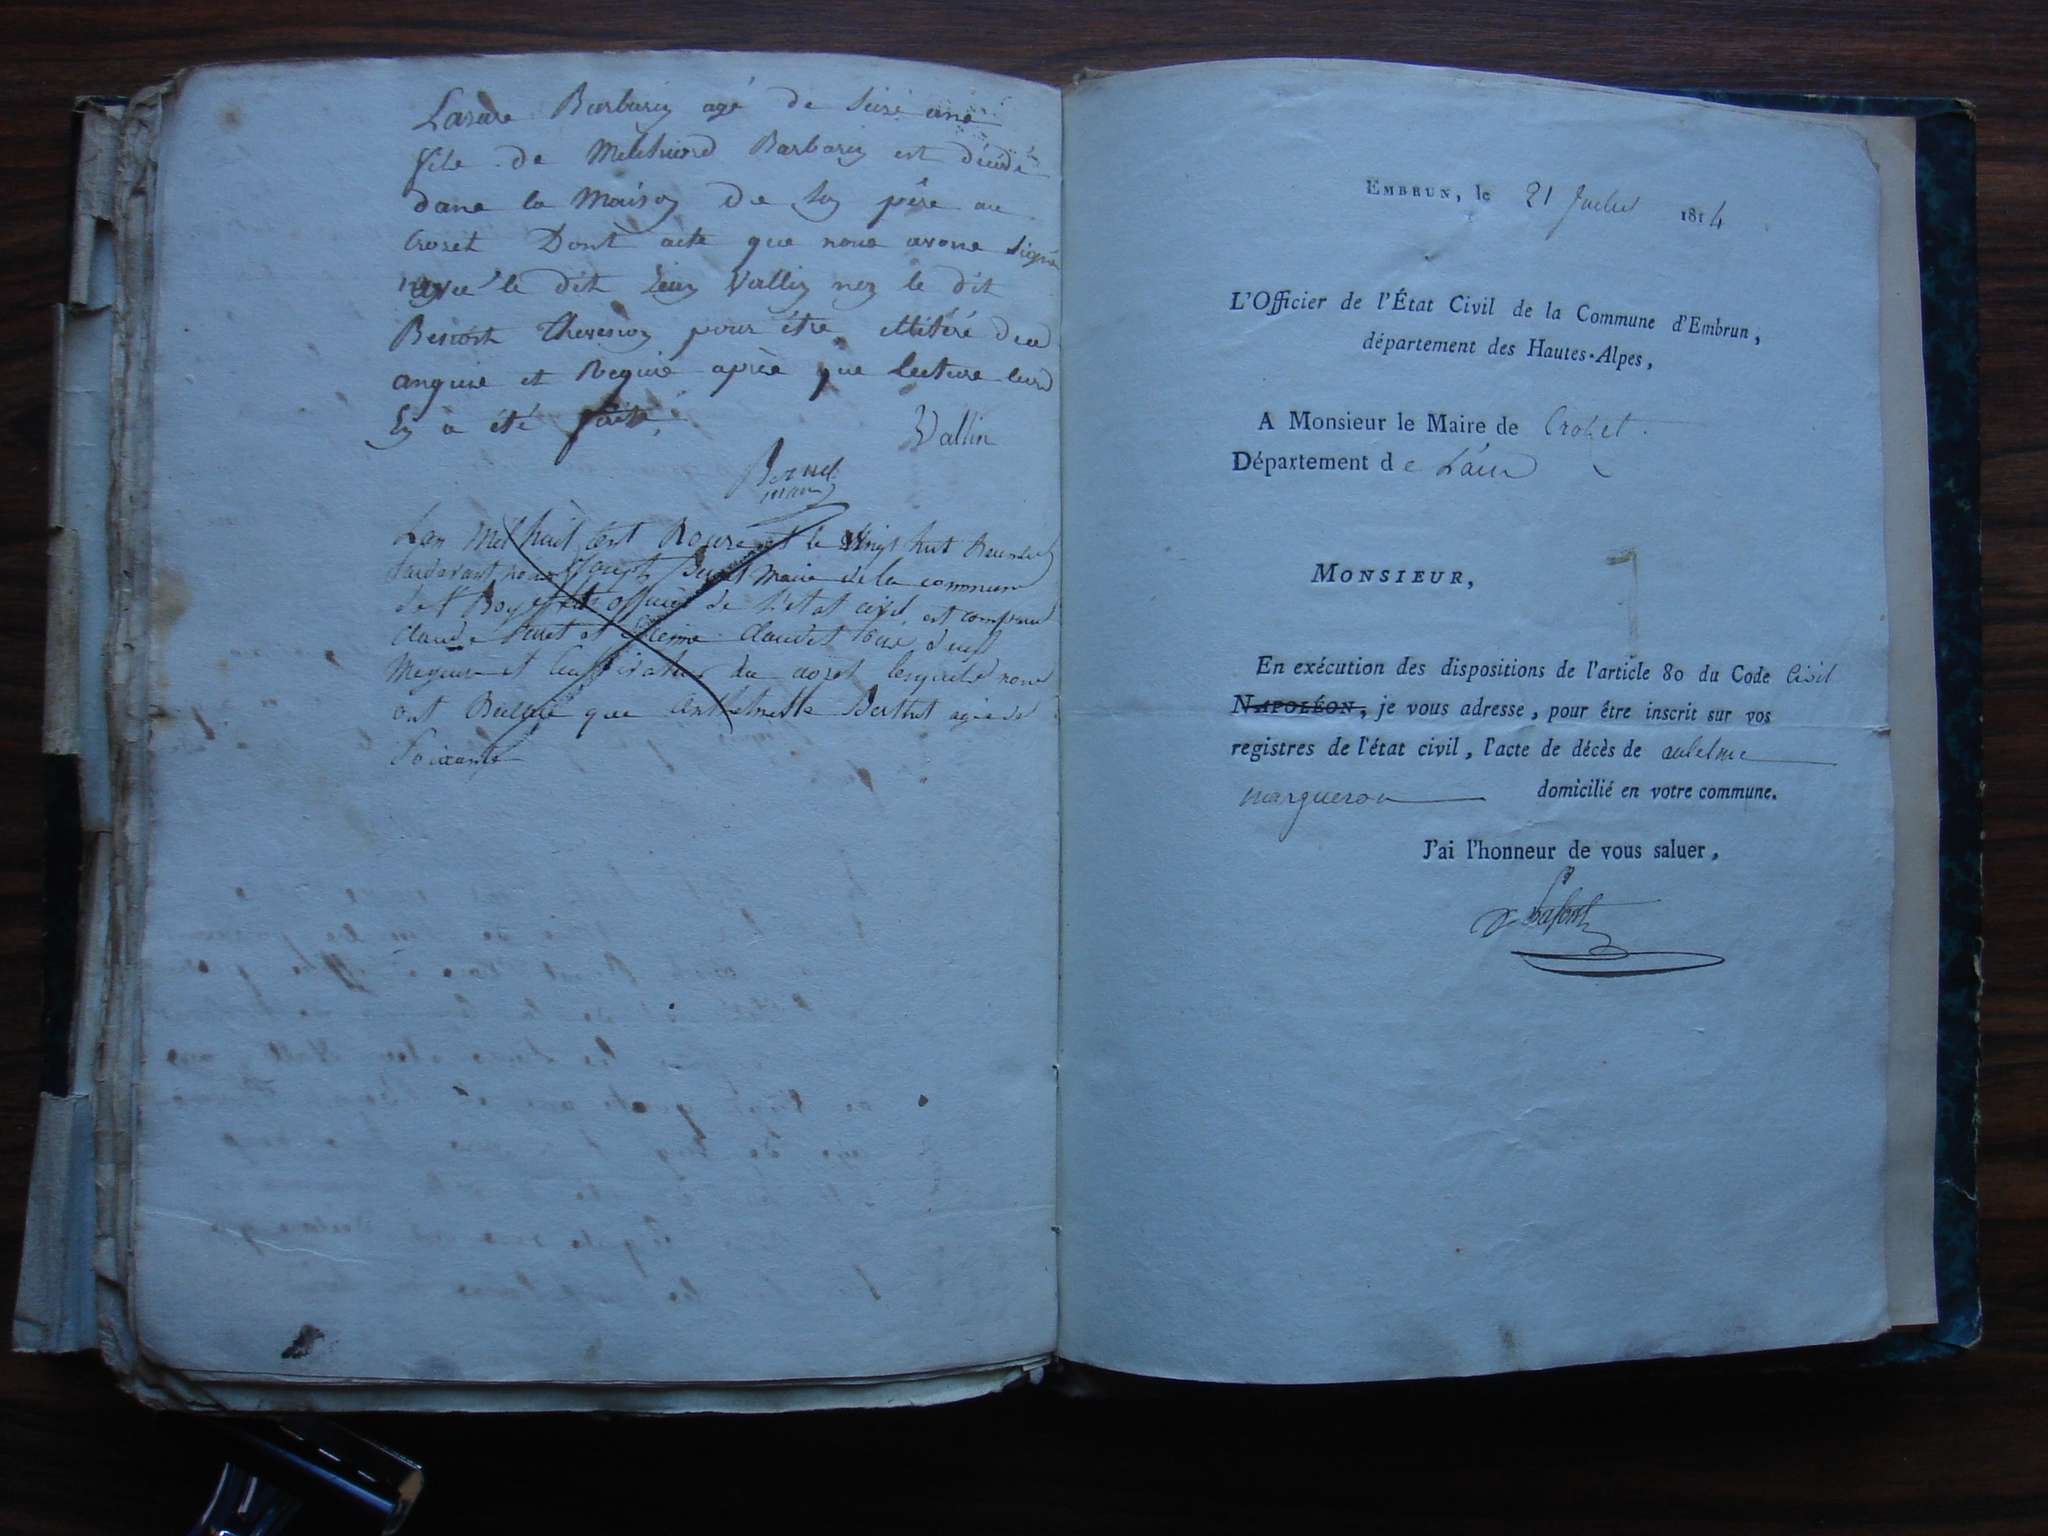 Lazare Barbarin agé de Seize ans
fils de Melchiord Barbarin est décédé
dans la Maison De Son père au
Crozet Dont acte que nous avons Signé
avec le dit Jean Vallin non le dit
Benoist pour être illitéré de ce
enquis et Requis après que Lecture leurs
En a été faite
Vallin
Bernet
maire
Lan Mil huit cent Douze et le Vingt huit
Pardevant nous Maire de la commune
officier de l'etat civil est comparu
Claude et Claudet tous deux
Majeurs et du Crozet lesquels nous
ont Declaré que Anthelmette Berthet agée de
Soixante
EMBRUN, le 21 Juillet 1814
L'Officier de l'État Civil de la Commune d'Embrun,
département des Hautes-Alpes,
A Monsieur le Maire de Crozet.
Département de L'ain
MONSIEUR,
En exécution des dispositions de l'article 80 du Code Civil
NAPOLÉON, je vous adresse, pour être inscrit sur vos
registres de l'état civil, l'acte de décès de antelme
margueron domicilié en votre commune.
J'ai l'honneur de vous saluer,